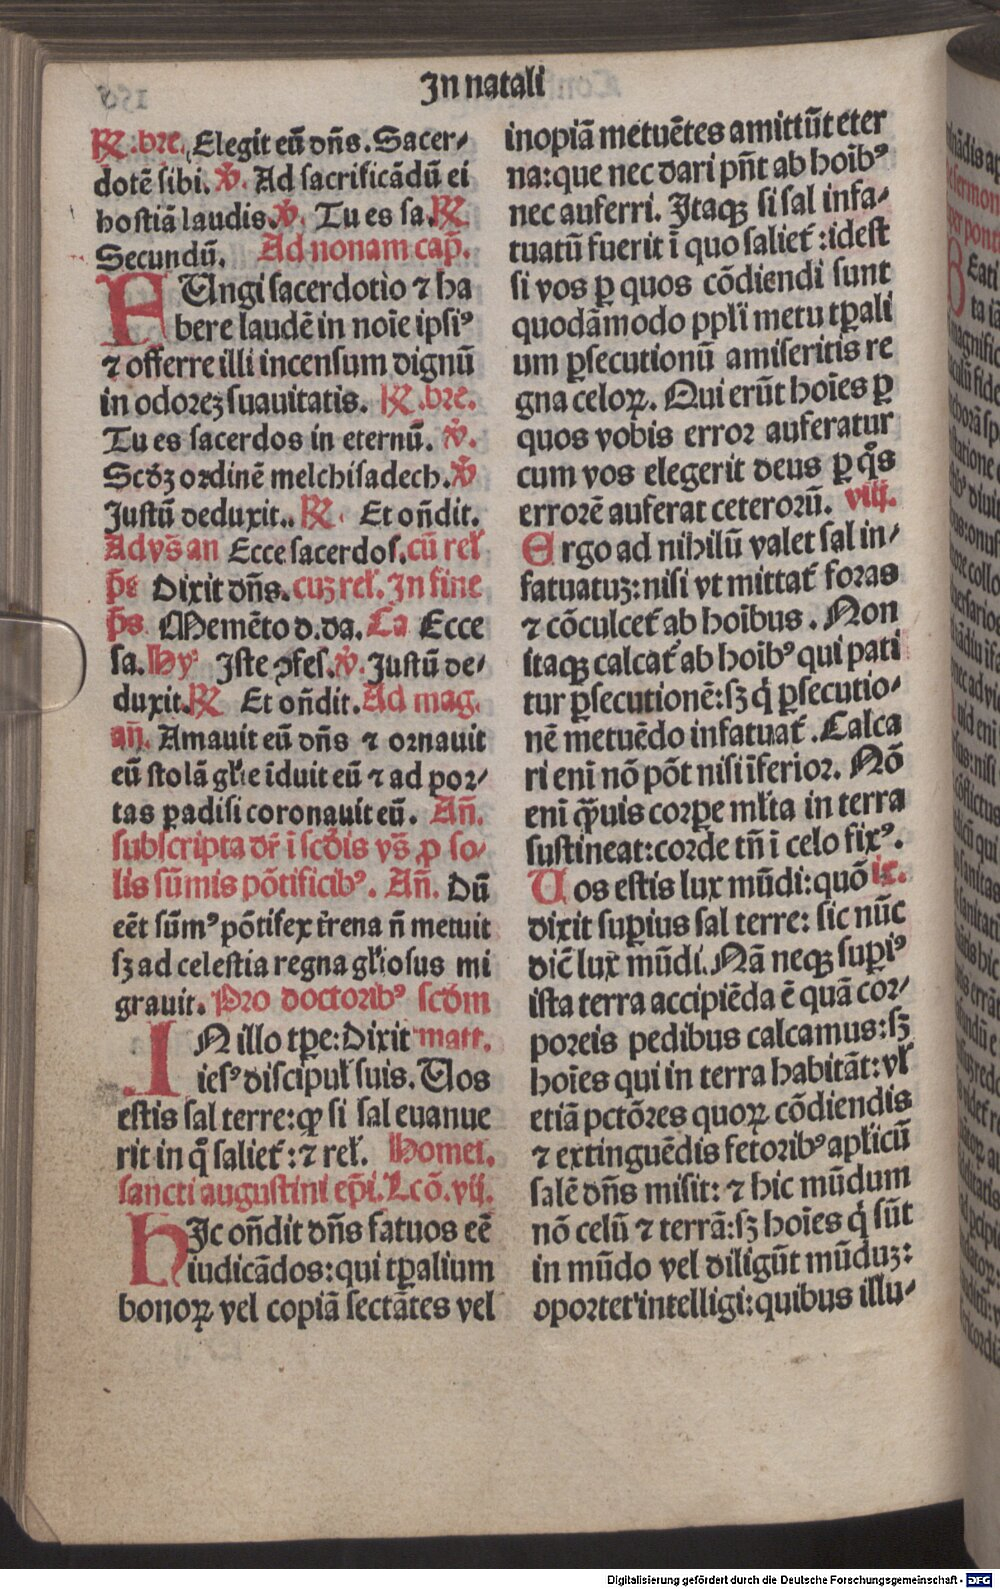 In natali
℟. bre. Elegit eū dn̄s. Sacer⸗
dotē sibi. ℣. Ad sacrificādū ei
hostiā laudis. ℣. Tu es sa. ℟
Secundū. Ad nonam cap̄.
FUngi sacerdotio ⁊ ha
bere laudē in noīe ipsiꝰ
⁊ offerre illi incensum dignū
in odorez suauitatis. ℟. bre.
Tu es sacerdos in eternū. ℣.
Scd̄ꝫ ordinē melchisadech. ℣
Justū deduxit.. ℟. Et on̄dit.
Ad vs̄ an Ecce sacerdos. cū rel̄
p̄s Dixit dn̄s. cuz rel̄. In fine
p̄s Memēto d. da. Ca Ecce
sa. Hy Iste ꝯfes. ℣. Justū de⸗
duxit. ℟ Et on̄dit. Ad mag.
an̄. Amauit eū dn̄s ⁊ ornauit
eū stolā gl̄ie īduit eū ⁊ ad por⸗
tas padisi coronauit eū. An̄.
subscripta dr̄ ī scd̄is vs̄ ꝓ so⸗
lis sūmis pōtificibꝰ. An̄. Dū
eēt sūmꝰ pōtifex tr̄ena n̄ metuit
sꝫ ad celestia regna gl̄iosus mi
grauit. Pro doctoribꝰ scd̄m
IN illo tꝑe: Dixit matt.
iesꝰ discipul̄ suis. Uos
estis sal terre: ꝙ si sal euanue
rit in q̊ saliet̄: ⁊ rel̄. Homel.
sancti augustini ep̄i. Lcō. vij.
HIc on̄dit dn̄s fatuos eē
iudicādos: qui tꝑalium
bonoꝝ vel copiā sectātes vel
inopiā metuētes amittūt eter
na: que nec dari pn̄t ab hoībꝰ
nec auferri. Itaqꝫ si sal infa⸗
tuatū fuerit ī quo saliet̄: idest
si vos ꝑ quos cōdiendi sunt
quodāmodo ppl̄i metu tꝑali
um ꝑsecutionū amiseritis re
gna celoꝝ. Qui erūt hoīes ꝑ
quos vobis error auferatur
cum vos elegerit deus ꝑ q̊s
errorē auferat ceterorū. viij.
Ergo ad nihilū valet sal in⸗
fatuatuꝫ: nisi vt mittat̄ foras
⁊ cōculcet̄ ab hoībus. Non
itaqꝫ calcat̄ ab hoībꝰ qui pati
tur ꝑsecutionē: sꝫ q̇ ꝑsecutio⸗
nē metuēdo infatuat̄. Calca
ri enī nō pōt nisi īferior. Nō
enī q̄uis corꝑe ml̄ta in terra
sustineat: corde tn̄ ī celo fixꝰ.
Uos estis lux mūdi: quō ix.
dixit suꝑius sal terre: sic nūc
dic̄ lux mūdi. Nā neqꝫ suꝑiꝰ
ista terra accipiēda ē quā cor⸗
poreis pedibus calcamus: sꝫ
hoīes qui in terra habitāt: vl̄
etiā pctōres quoꝝ cōdiendis
⁊ extinguēdis fetoribꝰ apl̄icū
salē dn̄s misit: ⁊ hic mūdum
nō celū ⁊ terrā: sꝫ hoīes q̇ sūt
in mūdo vel diligūt mūduꝫ:
oportet intelligi: quibus illu⸗
Digitalisierung gefördert durch die Deutsche Forschungsgemeinschaft - DFG